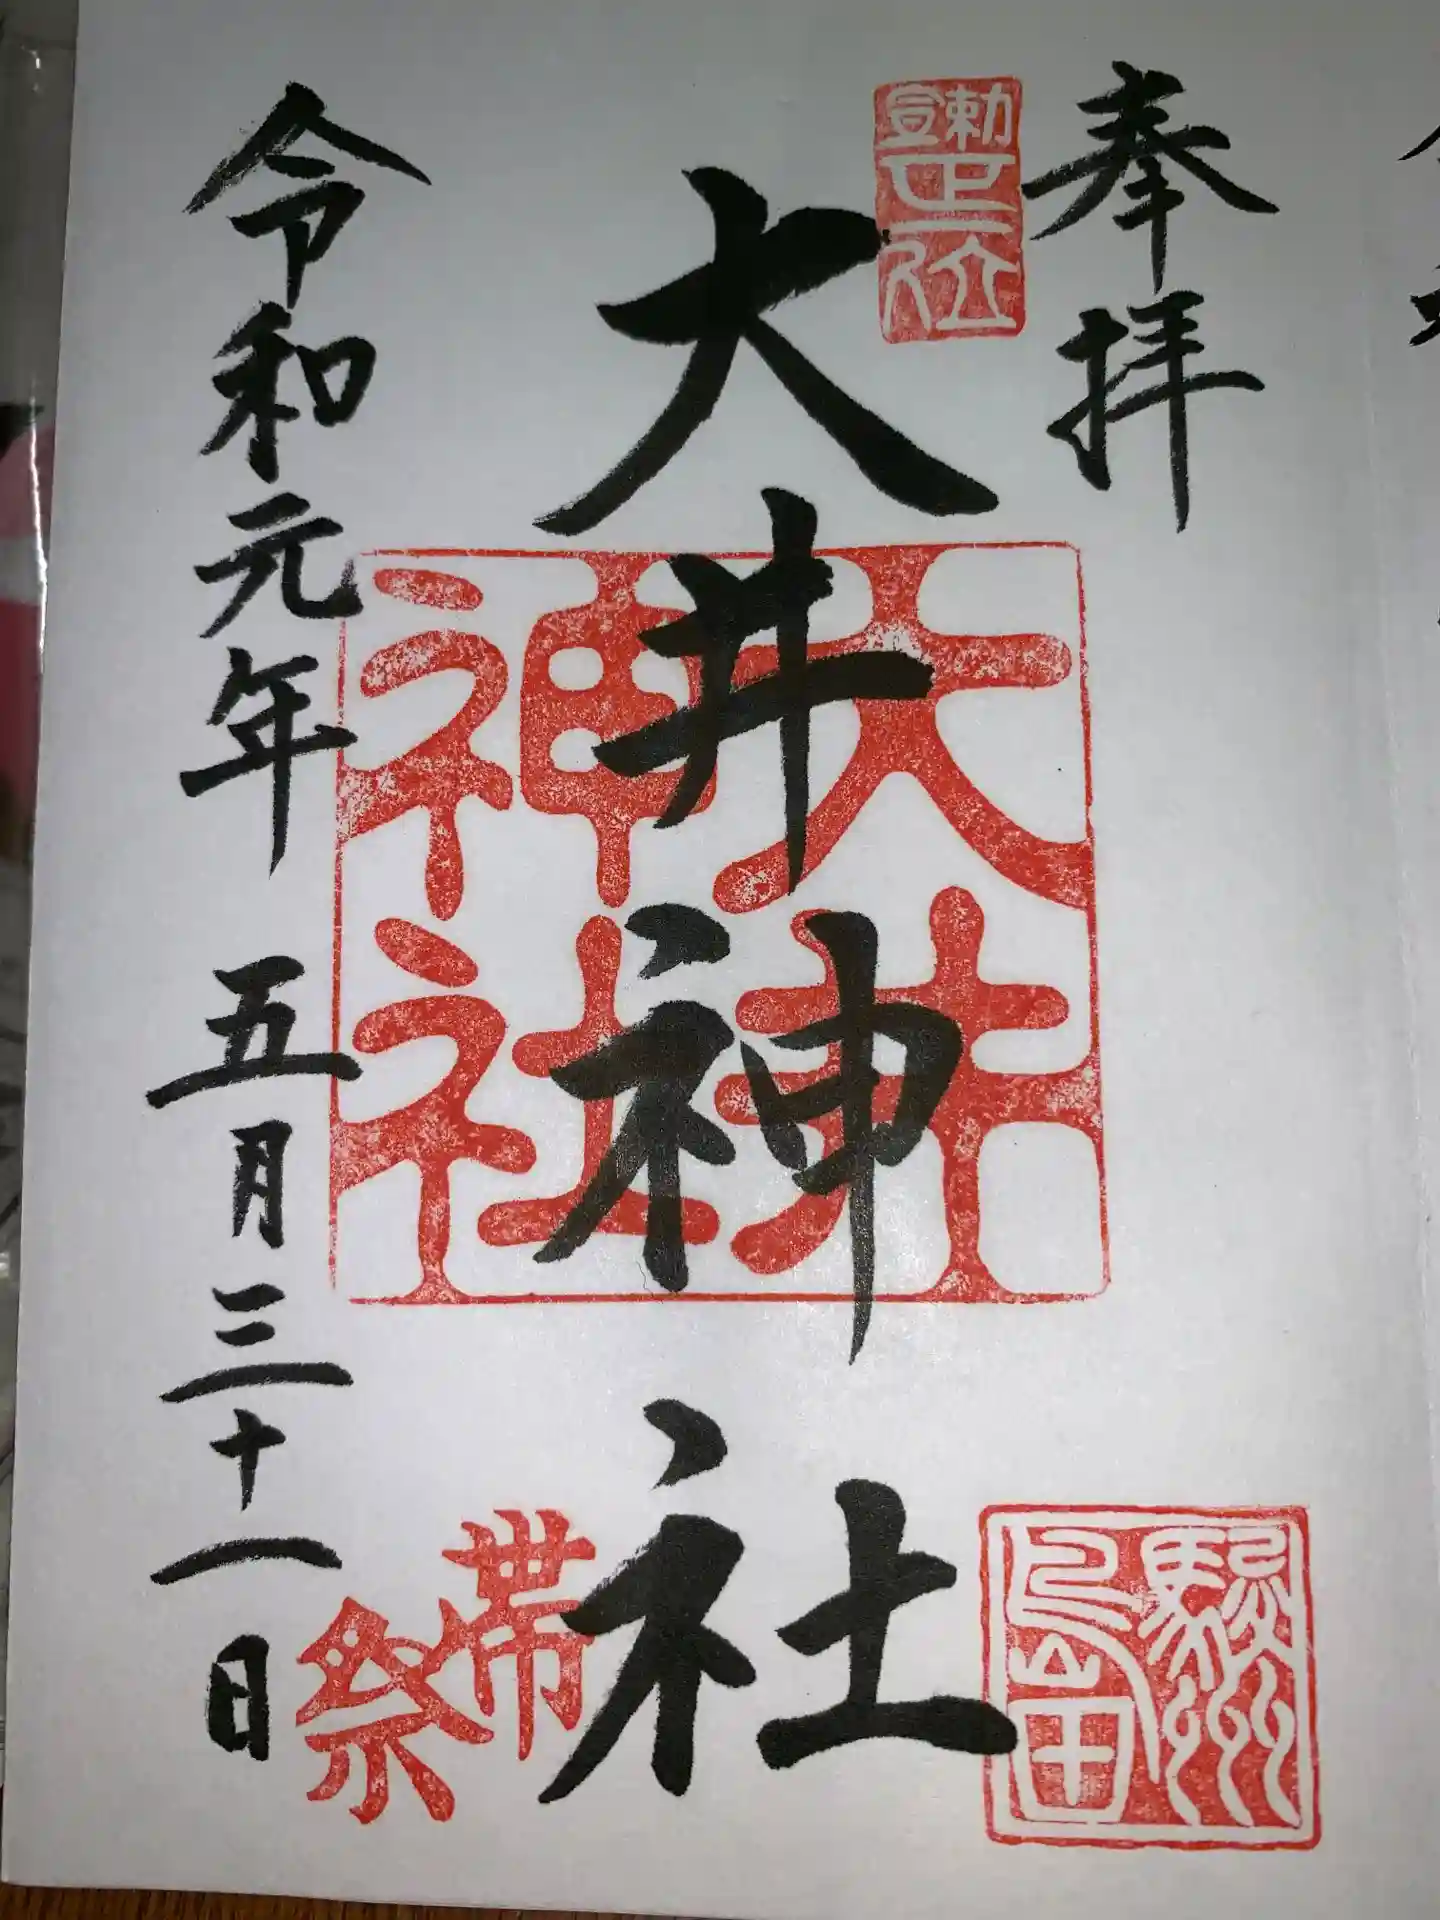 奉拝
勅宣正一位
大井神社
大井神社
駿州島田
帯祭
令和元年 五月三十一日